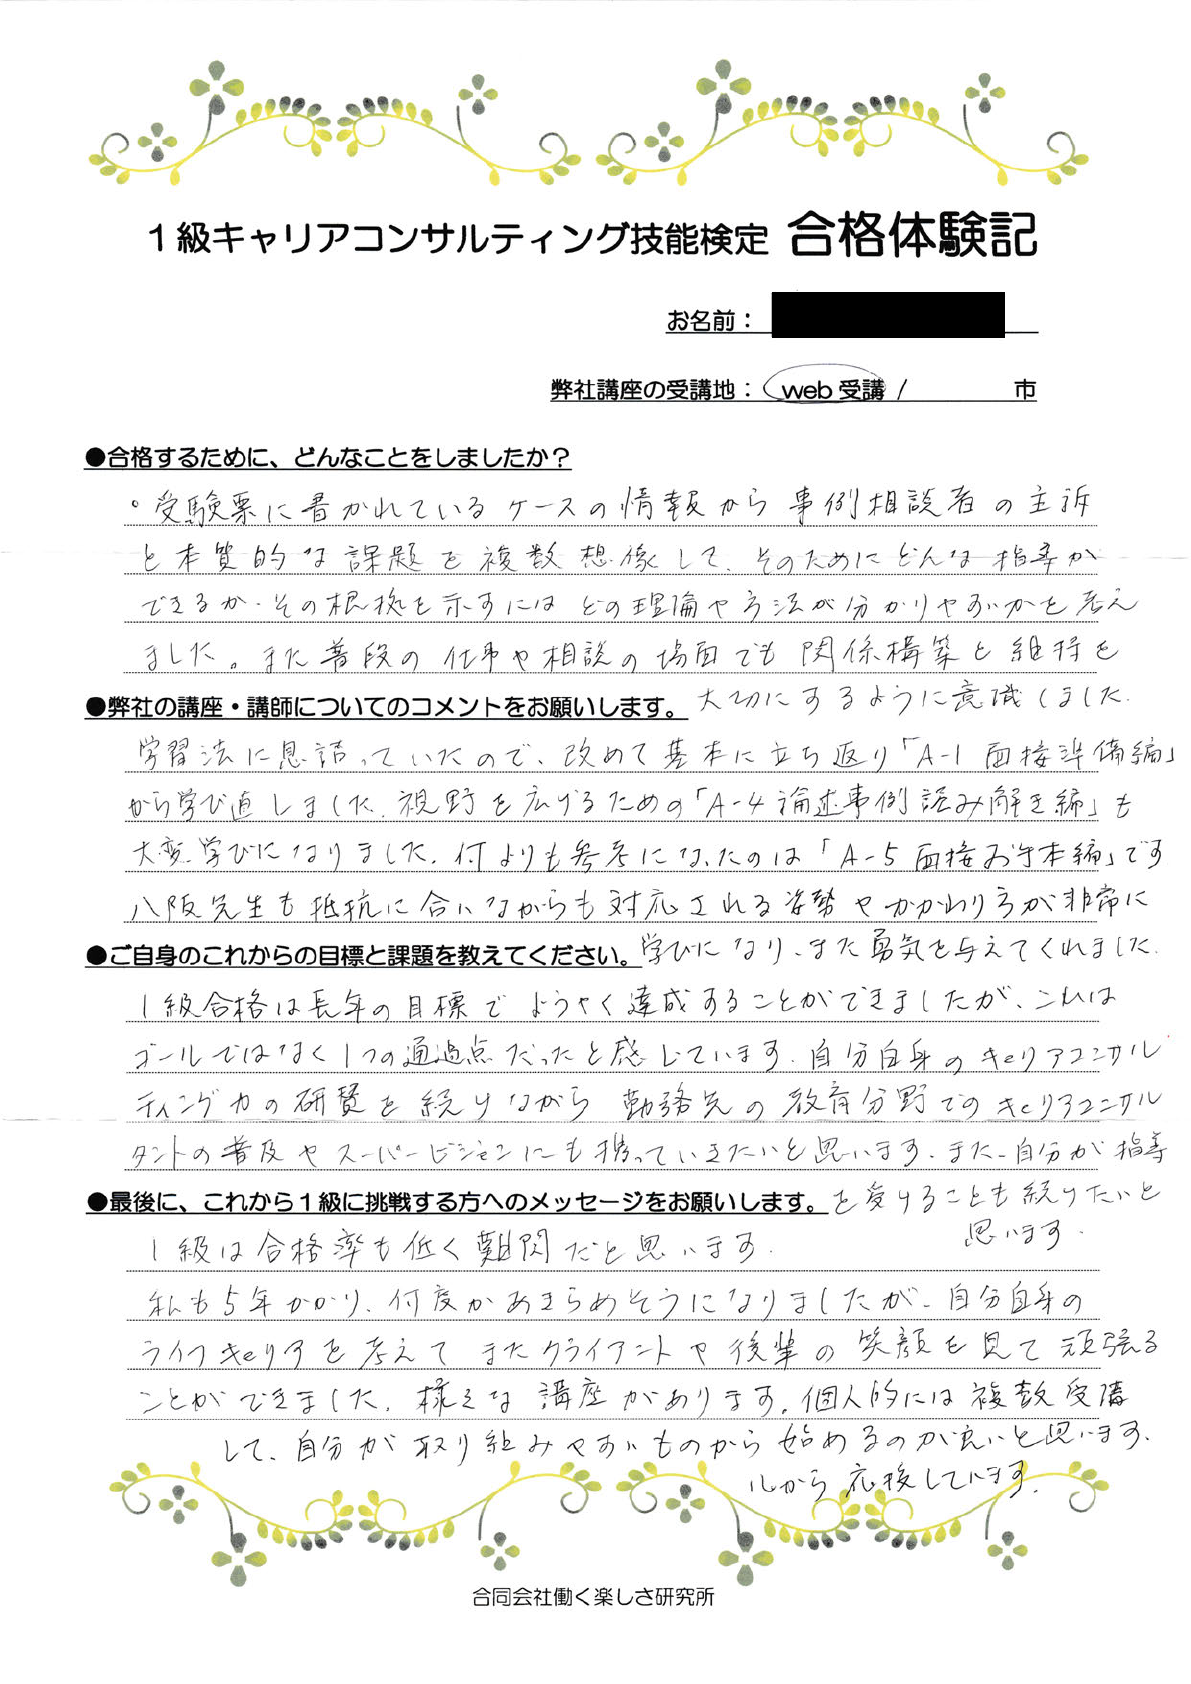 1級キャリアコンサルティング技能検定 合格体験記
お名前：
弊社講座の受講地： web受講 / 市
●合格するために、どんなことをしましたか？
。受験票に書かれているケースの情報から事例相談者の主訴
と本質的な課題を複数想像して、そのためにどんな指導が
できるか、その根拠を示すにはどの理論や方法が分かりやすいかを考え
ました。また普段の仕事や相談の場面でも関係構築と維持を
大切にするように意識しました。
●弊社の講座・講師についてのコメントをお願いします。
学習法に息詰っていたので、改めて基本に立ち返り「A-1 面接準備編」
から学び直しました。視野を広げるための「A-4 論述事例読み解き編」も
大変学びになりました。何よりも参考になったのは「A-5 面接お手本編」です
八阪先生も抵抗に合いながらも対応される姿勢やかかわり方が非常に
学びになり、また勇気を与えてくれました。
●ご自身のこれからの目標と課題を教えてください。
1級合格は長年の目標でようやく達成することができましたが、これは
ゴールではなく1つの通過点だったと感じています。自分自身のキャリアコンサル
ティング力の研賛を続けながら勤務先の教育分野でのキャリアコンサル
タントの普及やスーパービジョンにも携っていきたいと思います。また、自分が指導
を受けることも続けたいと
思います。
●最後に、これから1級に挑戦する方へのメッセージをお願いします。
1級は合格率も低く難関だと思います。
私も5年かかり、何度かあきらめそうになりましたが、自分自身の
ライフキャリアを考えてまたクライアントや後輩の笑顔を見て頑張る
ことができました。様々な講座があります。個人的には複数受講
して、自分が取り組みやすいものから始めるのが良いと思います。
心から応援しています。
合同会社働く楽しさ研究所